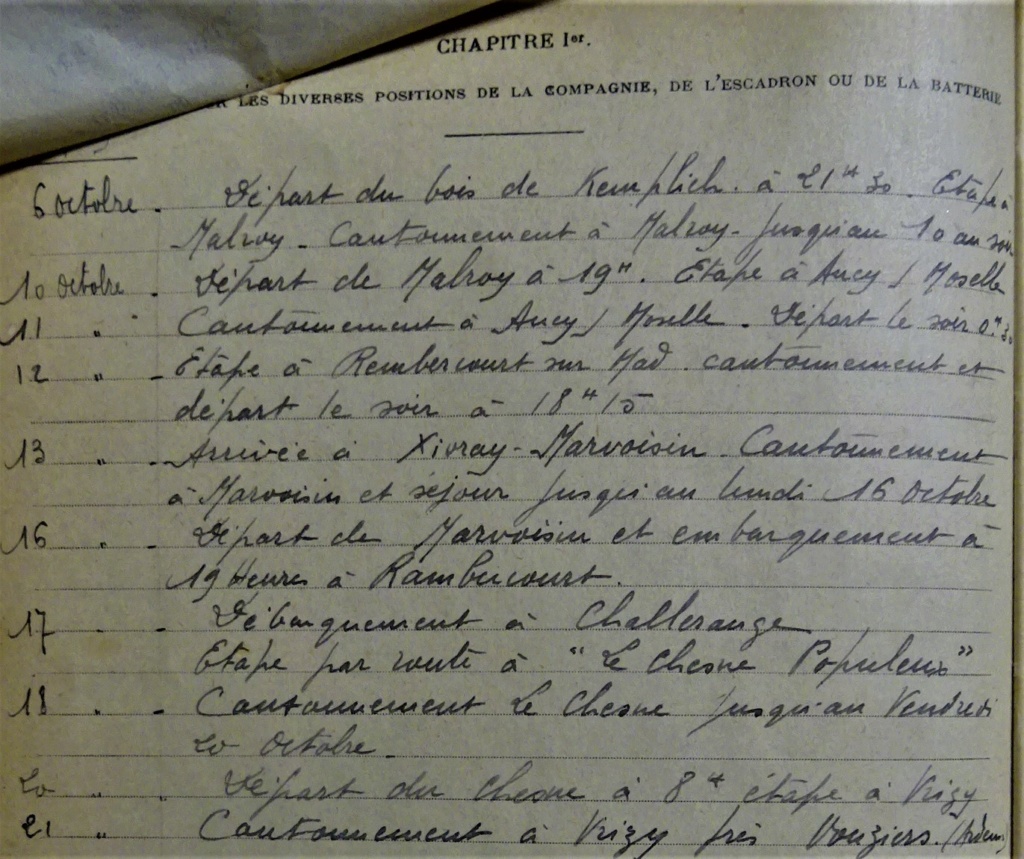 CHAPITRE Ier.
LES DIVERSES POSITIONS DE LA COMPAGNIE, DE L'ESCADRON OU DE LA BATTERIE
6 octobre. Départ du bois de Kemplich. à 21H30. Etape à
Malroy - Cantonnement à Malroy - jusqu'au 10 au soir
10 octobre. Départ de Malroy à 19H. Etape à Ancy / Moselle
11 " Cantonnement à Ancy / Moselle. Départ le soir 0.H30
12 " - Etape à Rembercourt sur Mad. cantonnement et
départ le soir à 18H15
13 " - Arrivée à Xivray-Marvoisin Cantonnement
à Marvoisin et séjour jusqu'au lundi 16 octobre
16 " - Départ de Marvoisin et embarquement à
19 Heures à Rambucourt.
17 " - Débarquement à Challerange
Etape par route à "Le Chesne Populeux"
18 " - Cantonnement Le Chesne jusqu'au Vendredi
20 octobre -
20 " . Départ du Chesne à 8H étape à Vrizy
21 " Cantonnement à Vrizy près Vouziers. (Ardennes)